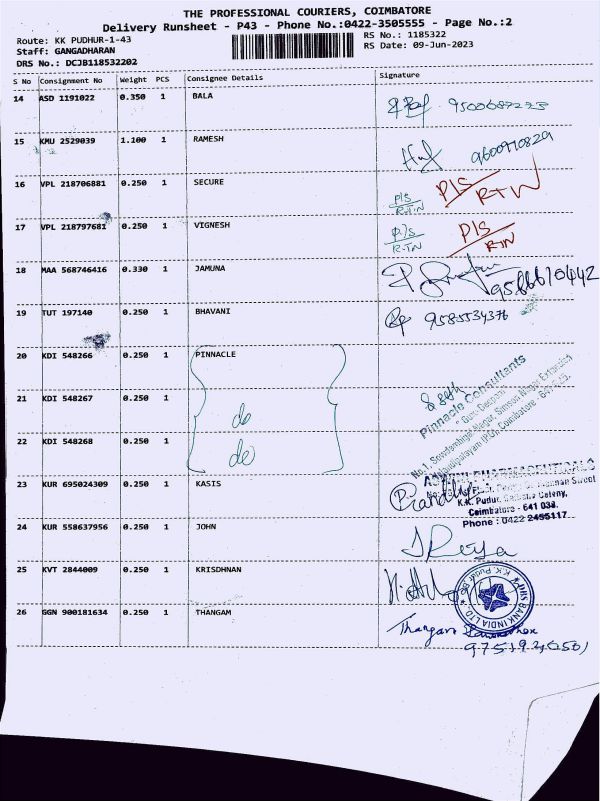 THE PROFESSIONAL COURIERS, COIMBATORE
Delivery Runsheet - P43 - Phone No.:0422-3505555 - Page No.:2
Route: KK PUDHUR-1-43 RS No.: 1185322
Staff: GANGADHARAN RS Date: 09-Jun-2023
DRS No.: DCJB118532202
S No Consignment No Weight PCS Consignee Details Signature
14 ASD 1191022 0.350 1 BALA
15 KMU 2529039 1.100 1 RAMESH
16 VPL 218706881 0.250 1 SECURE P/S RTN P/S RTN
17 VPL 218797681 0.250 1 VIGNESH P/S RTN P/S RTN
18 MAA 568746416 0.330 1 JAMUNA
19 TUT 197140 0.250 1 BHAVANI 9585534376
20 KDI 548266 0.250 1 PINNACLE
21 KDI 548267 0.250 1 do
22 KDI 548268 0.250 1 do
Pinnacle Consultants
23 KUR 695024309 0.250 1 KASIS
K.K. Pudur,
Coimbatore - 641 038.
Phone : 0422 2455117
24 KUR 558637956 0.250 1 JOHN
25 KVT 2844009 0.250 1 KRISDHNAN
DBS BANK INDIA LTD.
26 GGN 900181634 0.250 1 THANGAM